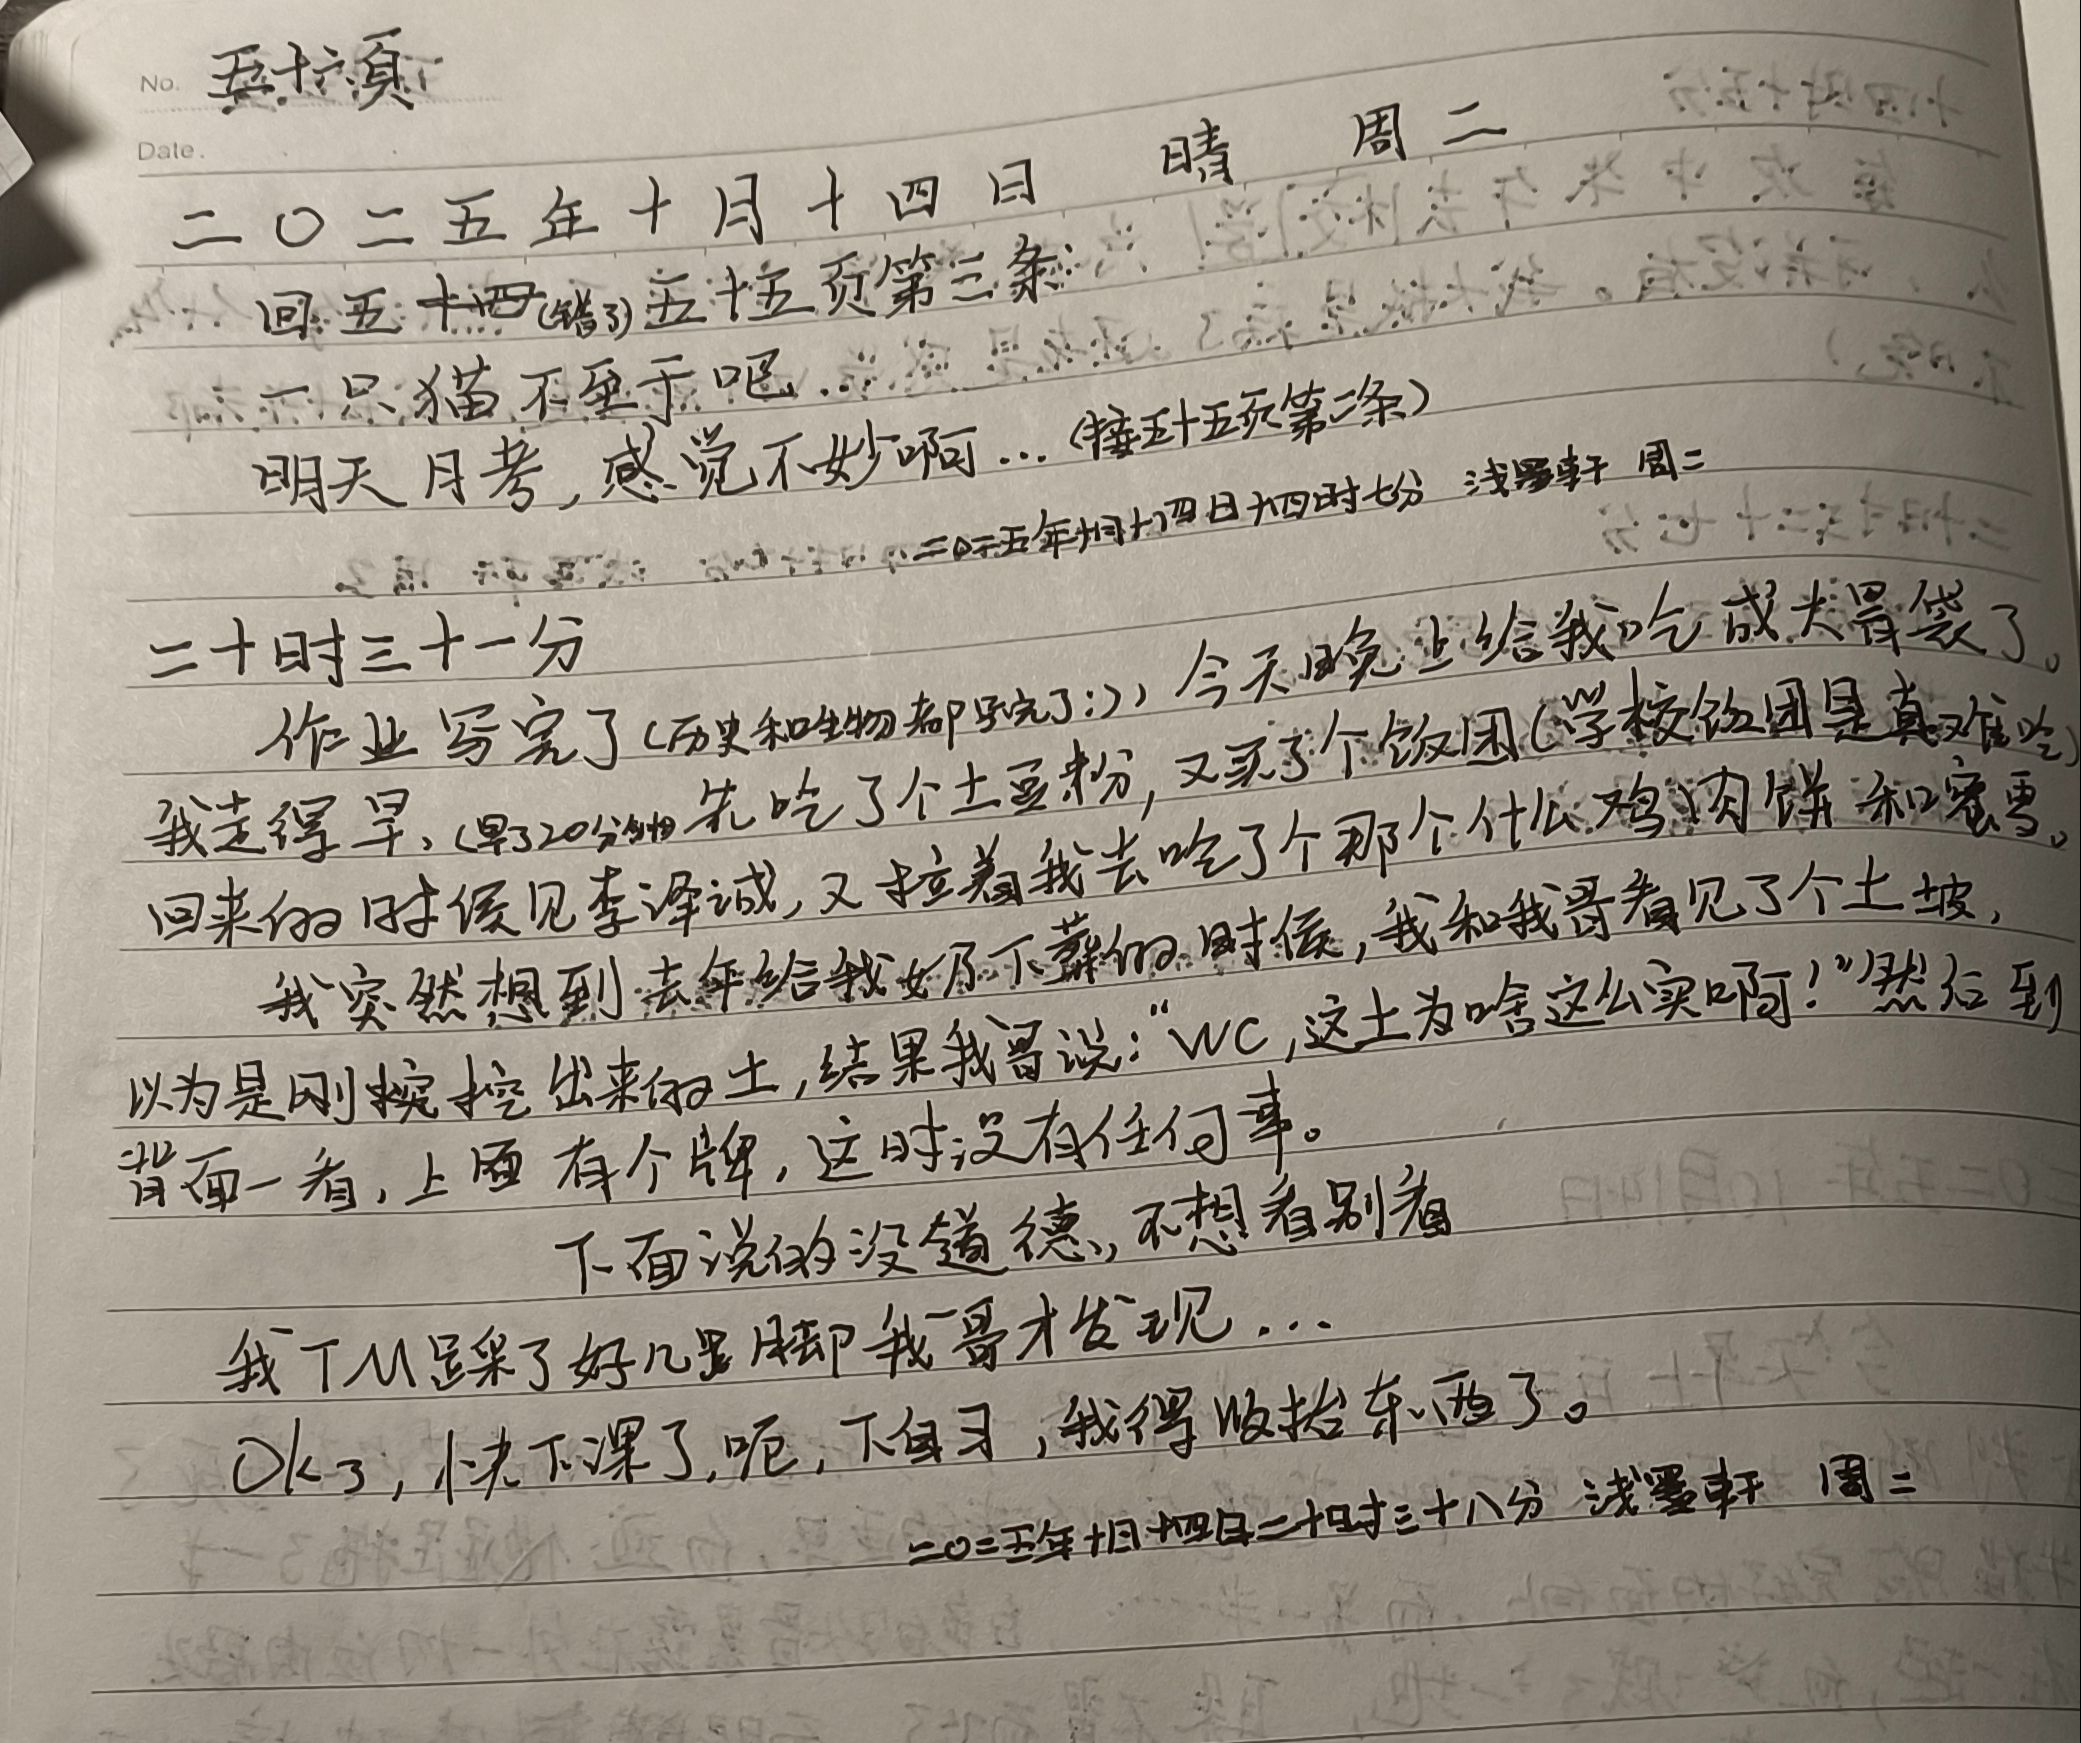 No. 五十六頁
Date.
二〇二五年十月十四日 晴 周二
回五十四(错了)五十五页第三条:
一只猫不至于吧...
明天月考,感觉不妙啊...(接五十五页第二条)
二〇二五年十月十四日十四时七分 浅墨軒 周二
二十时三十一分
作业写完了(历史和生物都写完了:),今天晚上给我吃成大胃袋了。
我走得早,(早了20分钟)先吃了个土豆粉,又买了个饭团(学校饭团是真难吃)
回来的时候见李泽诚,又拉着我去吃了个那个什么鸡肉饼和蜜雪。
我突然想到去年给我奶下葬的时候,我和我哥看见了个土坡,
以为是刚挖出来的土,结果我哥说:“WC,这土为啥这么实啊!”然后到
背面一看,上面有个牌,这时没有任何事。
下面说的没道德,不想看别看
我TM踩了好几脚我哥才发现...
OK了,快下课了,呃,下自习,我得收拾东西了。
二〇二五年十月十四日二十时三十八分 浅墨軒 周二